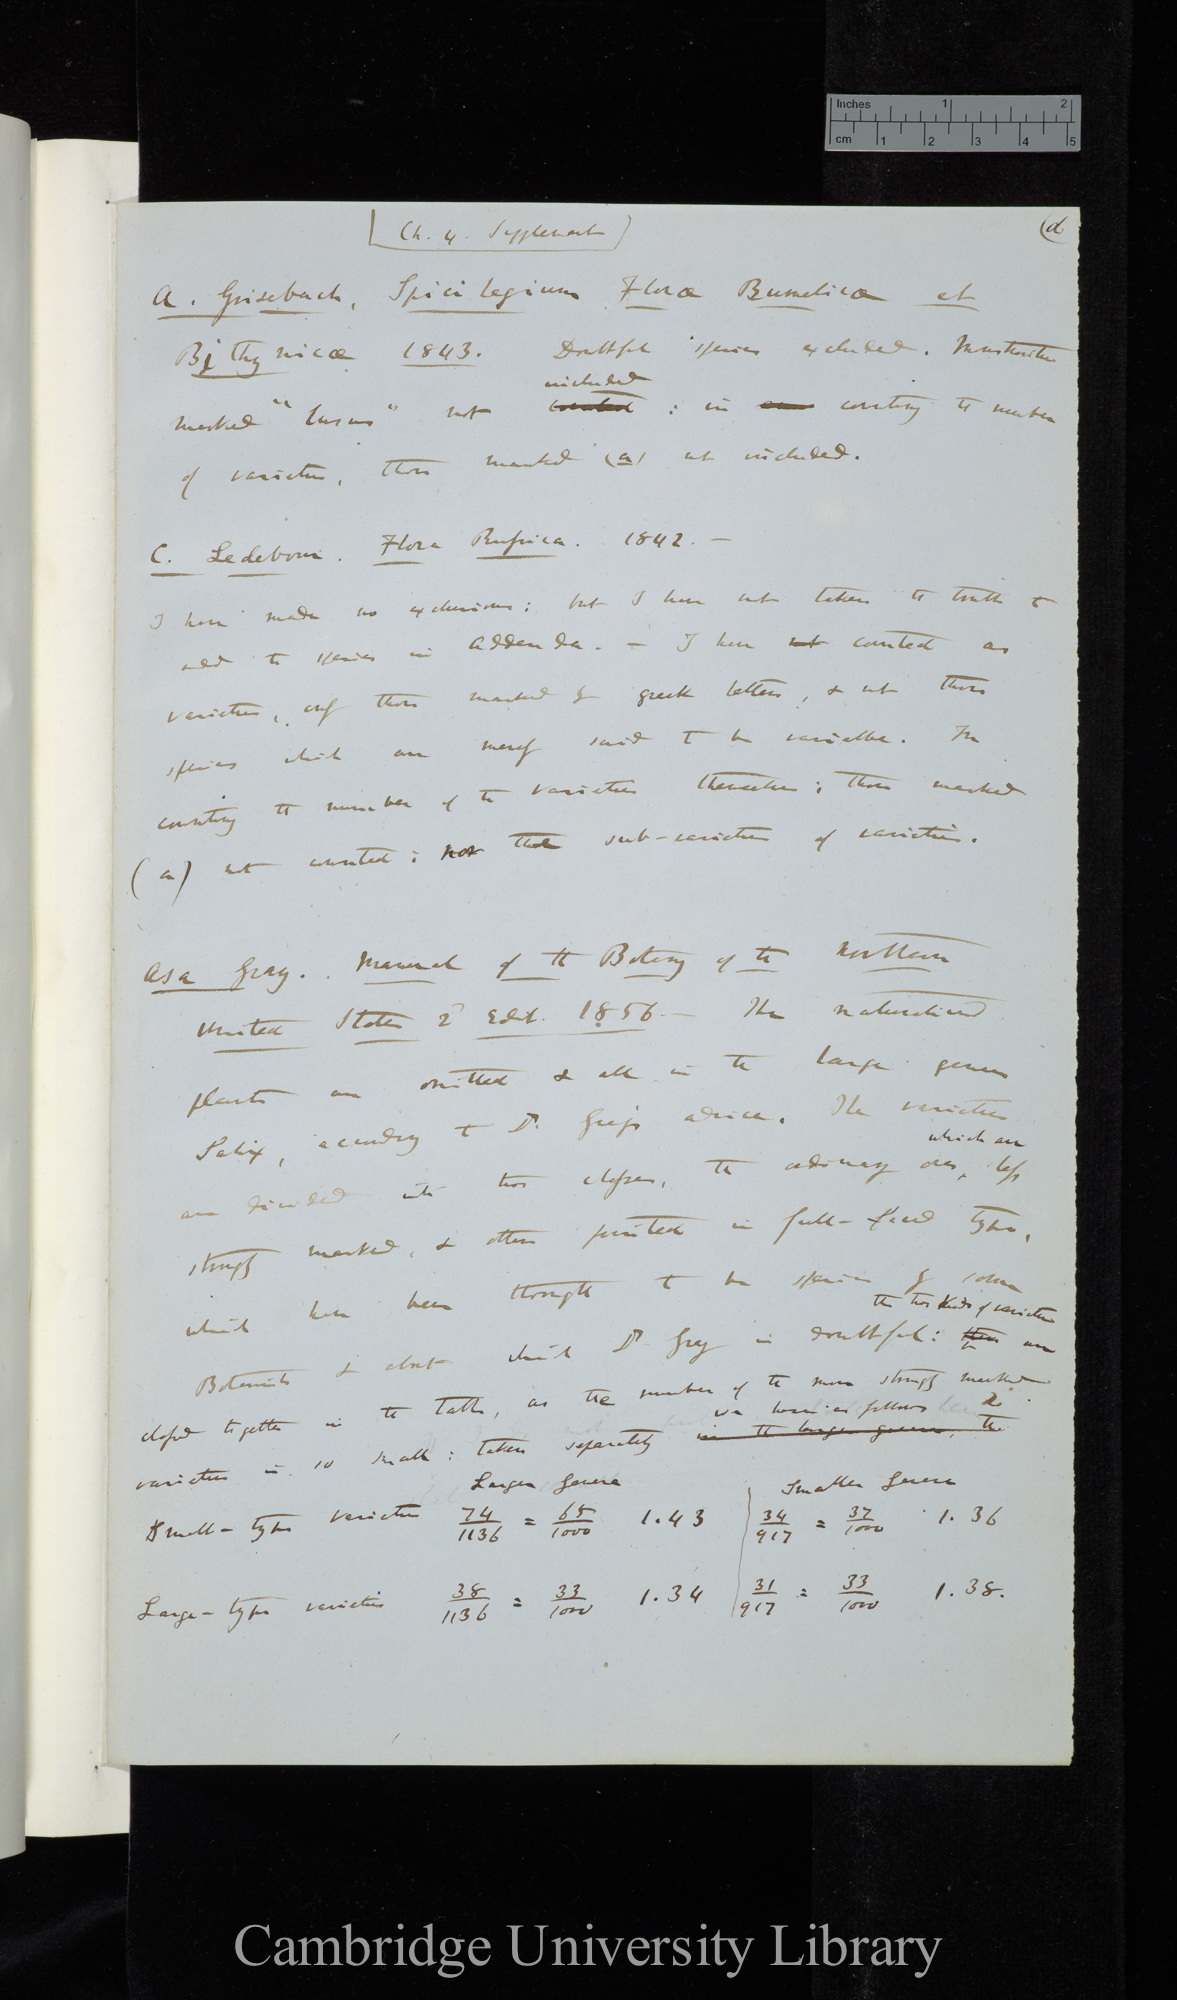 Inches 1 2
cm 1 2 3 4 5
Ch. 4. Supplement
(d
A. Grisebach, Spicilegium Floræ Rumelicæ et
Bithynicæ 1843. Doubtful species excluded.
included
marked "lusus" not counted : in counting the number
of varieties, those marked (a) not included.
C. Ledebour. Flora Rossica. 1842. —
I have made no exclusions; but I have not taken the trouble to
add the species in Addenda. — I have not counted as
varieties, only those marked by greek letters, & not those
species which are merely said to be variable. In
counting the number of the varieties themselves; those marked
(a) not counted; nor the sub-varieties of varieties.
Asa Gray. Manual of the Botany of the Northern
United States 2d Edit. 1856. — The naturalised
plants are omitted & all in the large genus
Salix, according to Dr. Gray's advice. The varieties
which are
are divided into two classes, the ordinary ones, less
strongly marked, & others printed in full-faced type,
which have been thought to be species by some
the two kinds of varieties
Botanists & about which Dr. Gray is doubtful: these are
classed together in the table, as the number of the more strongly marked
varieties is so small: taken separately in the larger genera, the
Larger Genera Smaller Genera
Small-type varieties 74/1136 = 65/1000 1.43 34/917 = 37/1000 1.36
Large-type varieties 38/1136 = 33/1000 1.34 31/917 = 33/1000 1.38.
Cambridge University Library